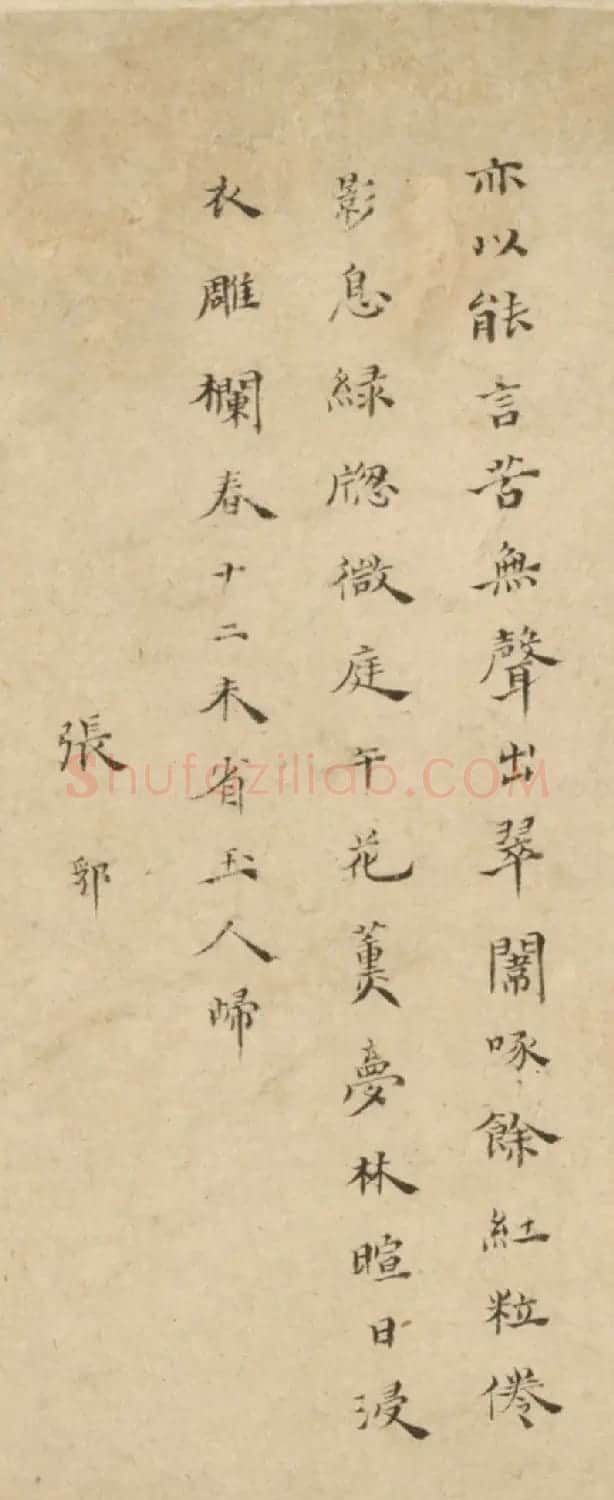 亦以能言苦無聲出翠闈啄餘紅粒倦
影息緑牎微庭午花薰夢林暄日浸
衣雕欄春十二未省玉人歸
張
Shufaziliao.COM